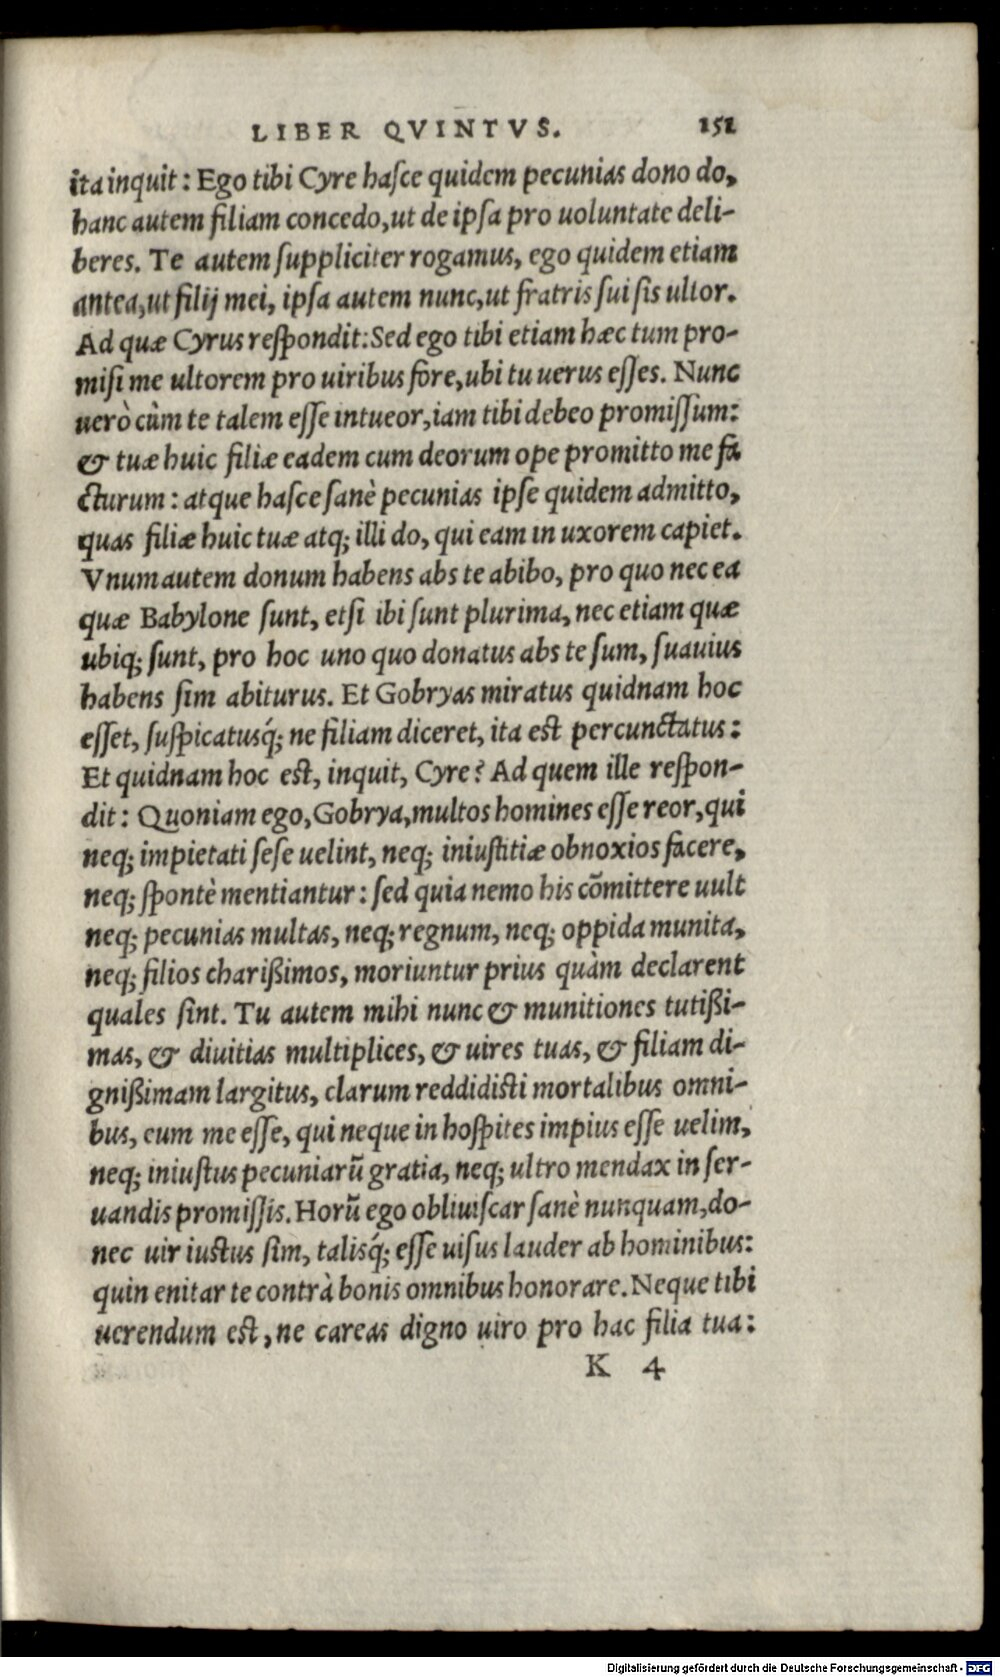 LIBER QVINTVS. 151
ita inquit: Ego tibi Cyre hasce quidem pecunias dono do,
hanc autem filiam concedo, ut de ipsa pro uoluntate deli-
beres. Te autem suppliciter rogamus, ego quidem etiam
antea, ut filij mei, ipsa autem nunc, ut fratris sui sis ultor.
Ad quæ Cyrus respondit: Sed ego tibi etiam hæc tum pro-
misi me ultorem pro uiribus fore, ubi tu uerus esses. Nunc
uerò cùm te talem esse intueor, iam tibi debeo promissum:
& tuæ huic filiæ eadem cum deorum ope promitto me fa
cturum: atque hasce sanè pecunias ipse quidem admitto,
quas filiæ huic tuæ atq; illi do, qui eam in uxorem capiet.
Vnum autem donum habens abs te abibo, pro quo nec ea
quæ Babylone sunt, etsi ibi sunt plurima, nec etiam quæ
ubiq; sunt, pro hoc uno quo donatus abs te sum, suauius
habens sim abiturus. Et Gobryas miratus quidnam hoc
esset, suspicatusq́; ne filiam diceret, ita est percunctatus:
Et quidnam hoc est, inquit, Cyre? Ad quem ille respon-
dit: Quoniam ego, Gobrya, multos homines esse reor, qui
neq; impietati sese uelint, neq; iniustitiæ obnoxios facere,
neq; spontè mentiantur: sed quia nemo his cõmittere uult
neq; pecunias multas, neq; regnum, neq; oppida munita,
neq; filios charißimos, moriuntur prius quàm declarent
quales sint. Tu autem mihi nunc & munitiones tutißi-
mas, & diuitias multiplices, & uires tuas, & filiam di-
gnißimam largitus, clarum reddidisti mortalibus omni-
bus, eum me esse, qui neque in hospites impius esse uelim,
neq; iniustus pecuniarũ gratia, neq; ultro mendax in ser-
uandis promissis. Horũ ego obliuiscar sanè nunquam, do-
nec uir iustus sim, talisq́; esse uisus lauder ab hominibus:
quin enitar te contrà bonis omnibus honorare. Neque tibi
uerendum est, ne careas digno uiro pro hac filia tua:
K 4
Digitalisierung gefördert durch die Deutsche Forschungsgemeinschaft - DFG